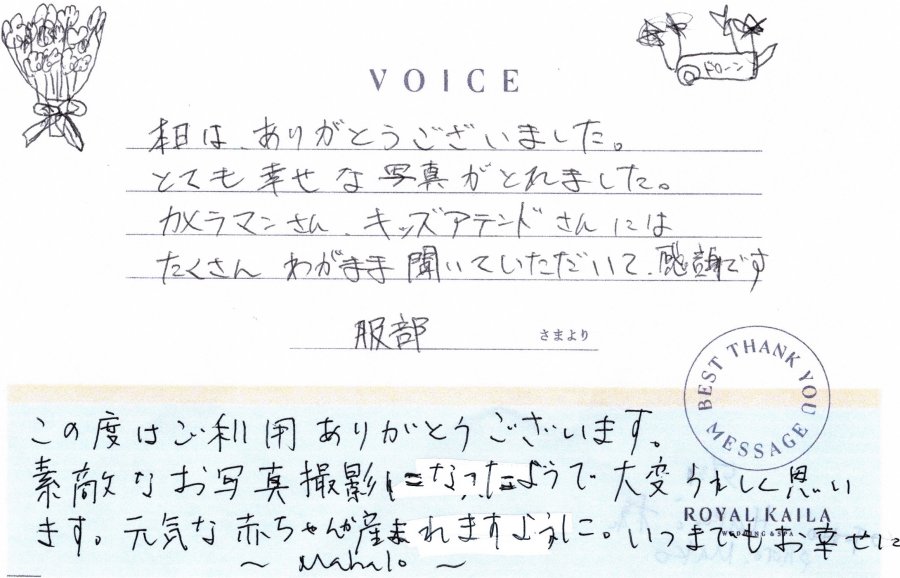 VOICE
ドローン
本日は、ありがとうございました。
とても幸せな写真がとれました。
カメラマンさん、キッズアテンドさんには
たくさんわがまま聞いていただいて、感謝です
服部 さまより
BEST THANK YOU MESSAGE
この度はご利用ありがとうございます。
素敵なお写真撮影になったようで大変うれしく思い
ます。元気な赤ちゃんが産まれますように。いつまでもお幸せに
ROYAL KAILA
WEDDING & SPA
～ Mahalo ～